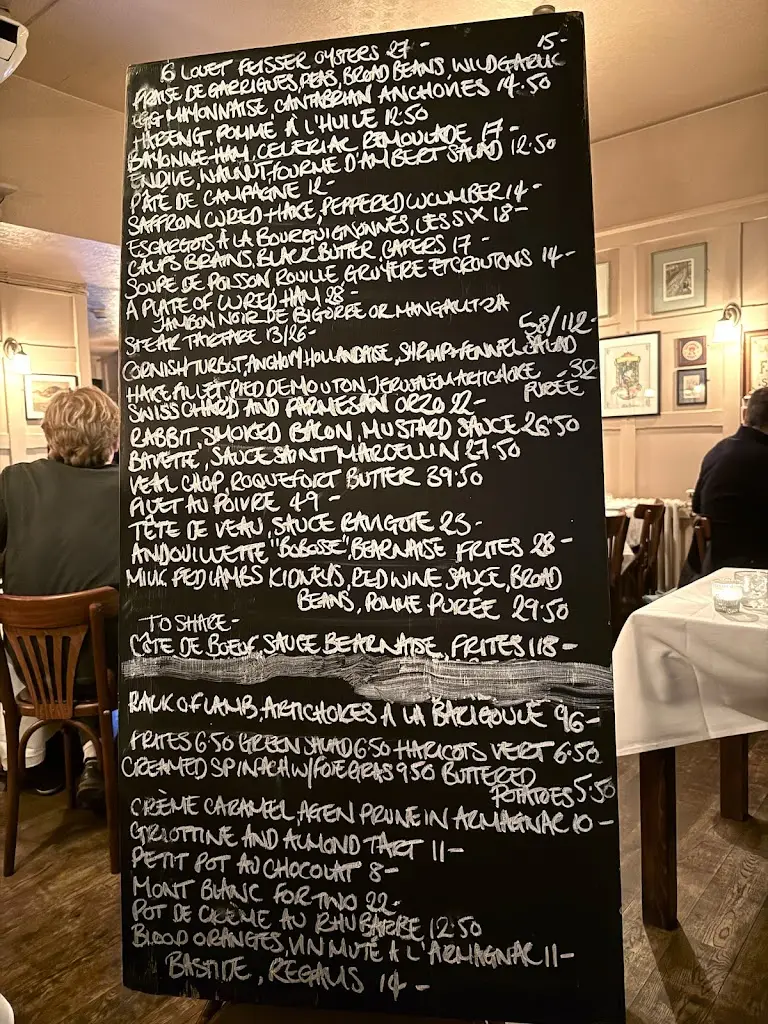 6 LOUET FEISSER OYSTERS 27-
FRAISE DE GARRIGUES, PEAS, BROAD BEANS, WILD GARLIC 15-
EGG MAYONNAISE, CANTABRIAN ANCHOVIES 14.50
HARENG, POMME À L'HUILE 12.50
BAYONNE HAM, CELERIAC REMOULADE 17-
ENDIVE, WALNUT, FOURME D'AMBERT SALAD 12.50
PÂTE DE CAMPAGNE 12-
SAFFRON CURED HAKE, PEPPERED CUCUMBER 14-
ESCARGOTS À LA BOURGUIGNONNES, LES SIX 18-
CALFS BRAINS, BLACK BUTTER, CAPERS 17-
SOUPE DE POISSON ROUILLE GRUYERE ET CROUTONS 14-
A PLATE OF CURED HAM 28-
JAMBON NOIR DE BIGORRE OR MANGALITZA
STEAK TARTARE 13/26-
58/112-
CORNISH TURBOT, ANCHOVY HOLLANDAISE, SHRIMP & FENNEL SALAD
HAKE FILLET, PIED DE MOUTON, JERUSALEM ARTICHOKE PURÉE -32
SWISS CHARD AND PARMESAN ORZO 22-
RABBIT, SMOKED BACON, MUSTARD SAUCE 26.50
BAVETTE, SAUCE SAINT MARCELLIN 27.50
VEAL CHOP, ROQUEFORT BUTTER 39.50
FILET AU POIVRE 49-
TÊTE DE VEAU, SAUCE RAVIGOTE 25-
ANDOUILLETTE "BOBOSSE", BEARNAISE FRITES 28-
MILK FED LAMBS KIDNEYS, RED WINE SAUCE, BROAD
BEANS, POMME PURÉE 29.50
TO SHARE-
CÔTE DE BOEUF, SAUCE BEARNAISE, FRITES 118-
RACK OF LAMB, ARTICHOKES À LA BARIGOULE 96-
FRITES 6.50 GREEN SALAD 6.50 HARICOTS VERT 6.50
CREAMED SPINACH W/FOIE GRAS 9.50 BUTTERED
POTATOES 5.50
CRÈME CARAMEL, AGEN PRUNE IN ARMAGNAC 10-
GRIOTTINE AND ALMOND TART 11-
PETIT POT AU CHOCOLAT 8-
MONT BLANC FOR TWO 22-
POT DE CRÈME AU RHUBARBE 12.50
BLOOD ORANGES, VIN MUTÉ À L'ARMAGNAC 11-
BASTIDE, REGALIS 14-